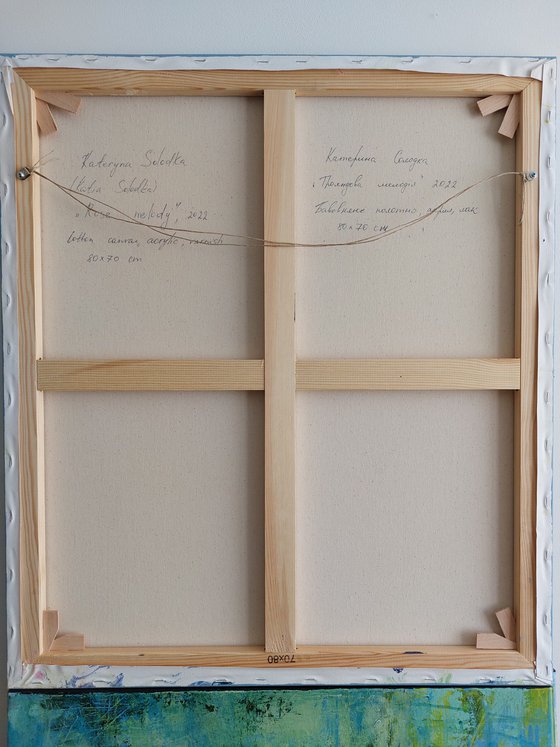 Kateryna Solodka
(Katia Solodka)
"Rose melody", 2022
Cotton canvas, acrylic, varnish
80x70 cm
Катерина Солодка
"Трояндова мелодія" 2022
Бавовняне полотно, акрил, лак
80x70 см
70x80